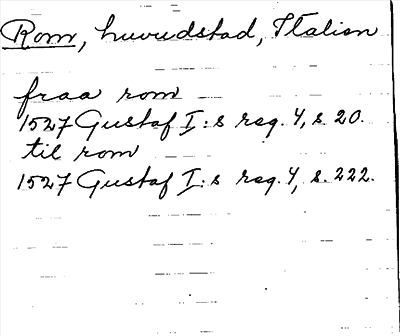 Rom, huvudstad, Italien
fraa rom
1527 Gustaf I:s reg. 4, s. 20.
til rom
1527 Gustaf I:s reg. 4, s. 222.